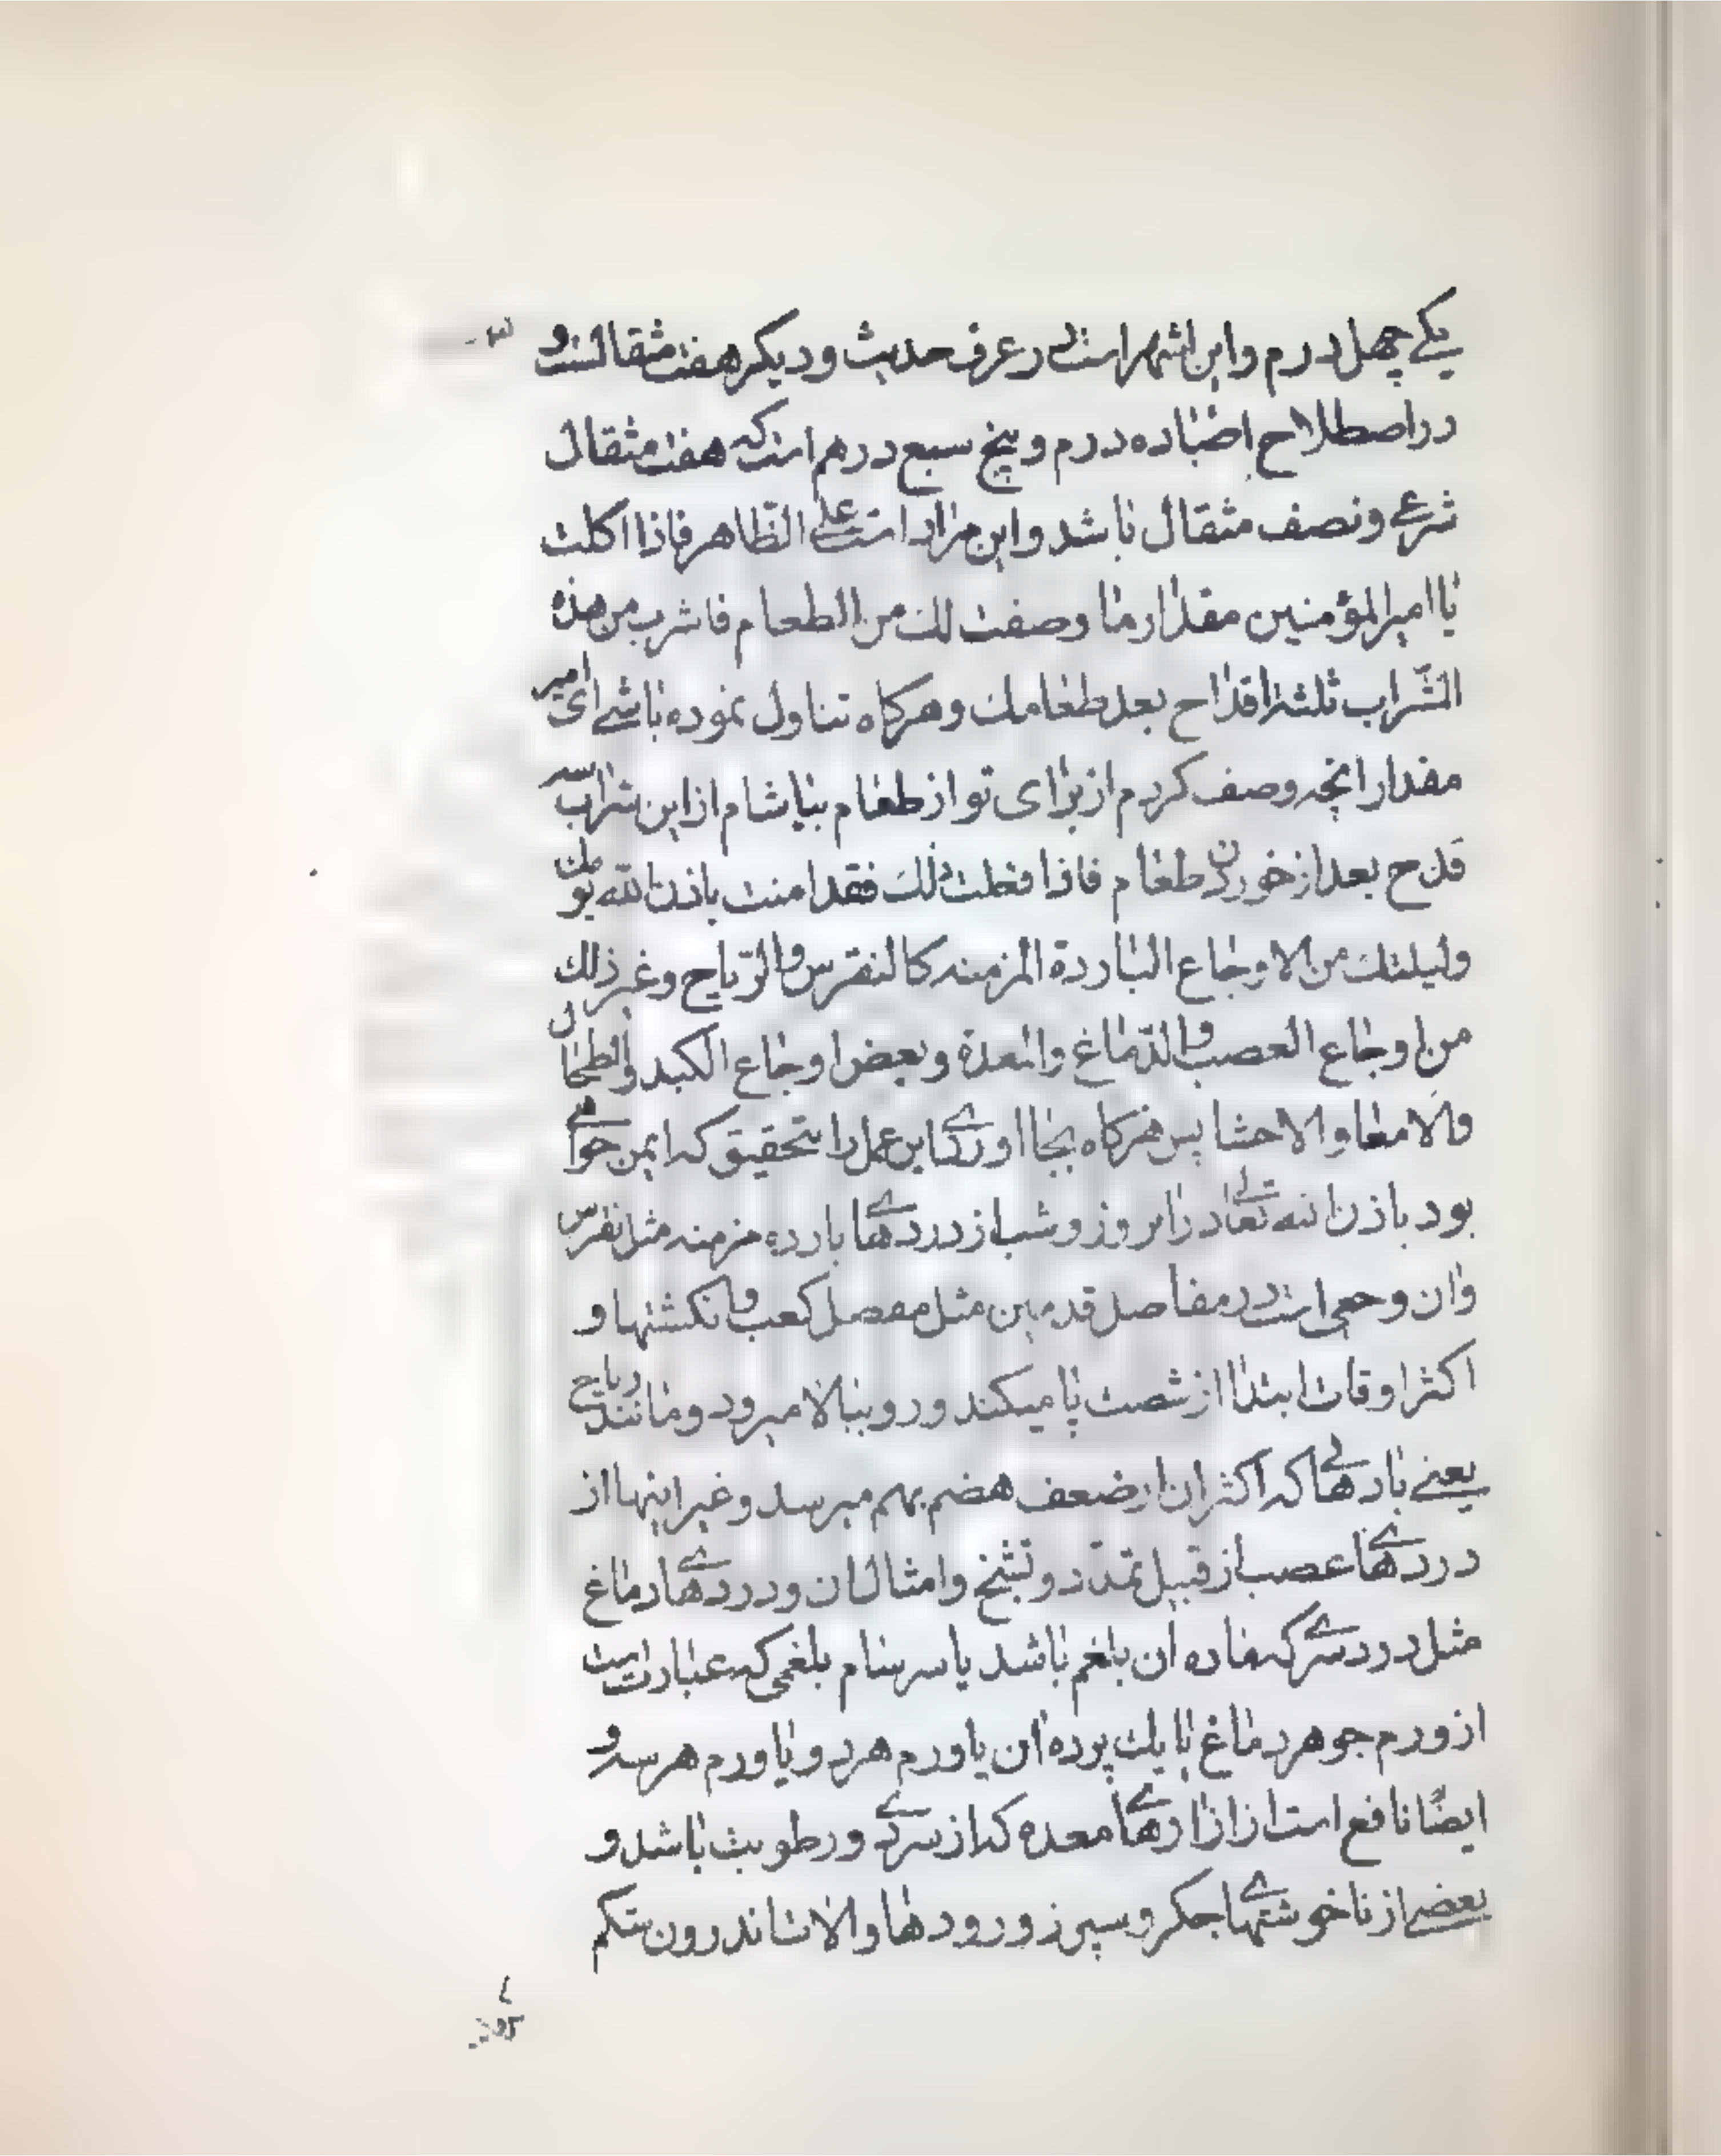 یکے چهل درم واین اشهر است در عرف حدیث ودیکر هفت مثقالست و
در اصطلاح اطبا ده درم وپنج سبع درهم است که هفت مثقال
شرعے ونصف مثقال باشد واین مراد است علی الظّاهر فاذا اکلت
یا امیر المؤمنین مقدار ما وصفت لك من الطعام فاشرب من هذه
الشّراب ثلثة اقداح بعد طعامك وهرکاه تناول نموده باشے ای امیر
مقدار انچه وصف کردم از برای تو از طعام بیاشام از این شراب سه
قدح بعد از خوردن طعام فاذا فعلت ذلك فقد امنت باذن الله یومك
ولیلتك من الاوجاع الباردة المزمنه کالنقرس والرّیاح وغیر ذلك
من اوجاع العصب والدّماغ والمعدة وبعض اوجاع الکبد والطحال
والامعا والاحشا پس هرکاه بجا اوردے این عمل را بتحقیق که ایمن خواهے
بود باذن الله تعالے در ان روز وشب از دردهاے بارده مزمنه مثل نقرس
وان وجعی است در مفاصل قدمین مثل مفصل کعب وانکشتها و
اکثر اوقات ابتدا از شصت پا میکند ورو ببالا میرود ومانند ریاح
یعنے بادهائے که اکثر ان از ضعف هضم بهم میرسد وغیر اینها از
دردهاے عصب از قبیل تمدّد وتشنج وامثال ان ودردهاے دماغ
مثل درد سرے که ماده ان بلغم باشد یا سرسام بلغمی که عبارت است
از ورم جوهر دماغ یا یك پرده ان یا ورم هر دو یا ورم هر سه و
ایضًا نافع است از ازارهاے معده که از سردے ورطوبت باشد و
بعضے از ناخوشیهاے جکر وسپرز ورودها والات اندرون شکم